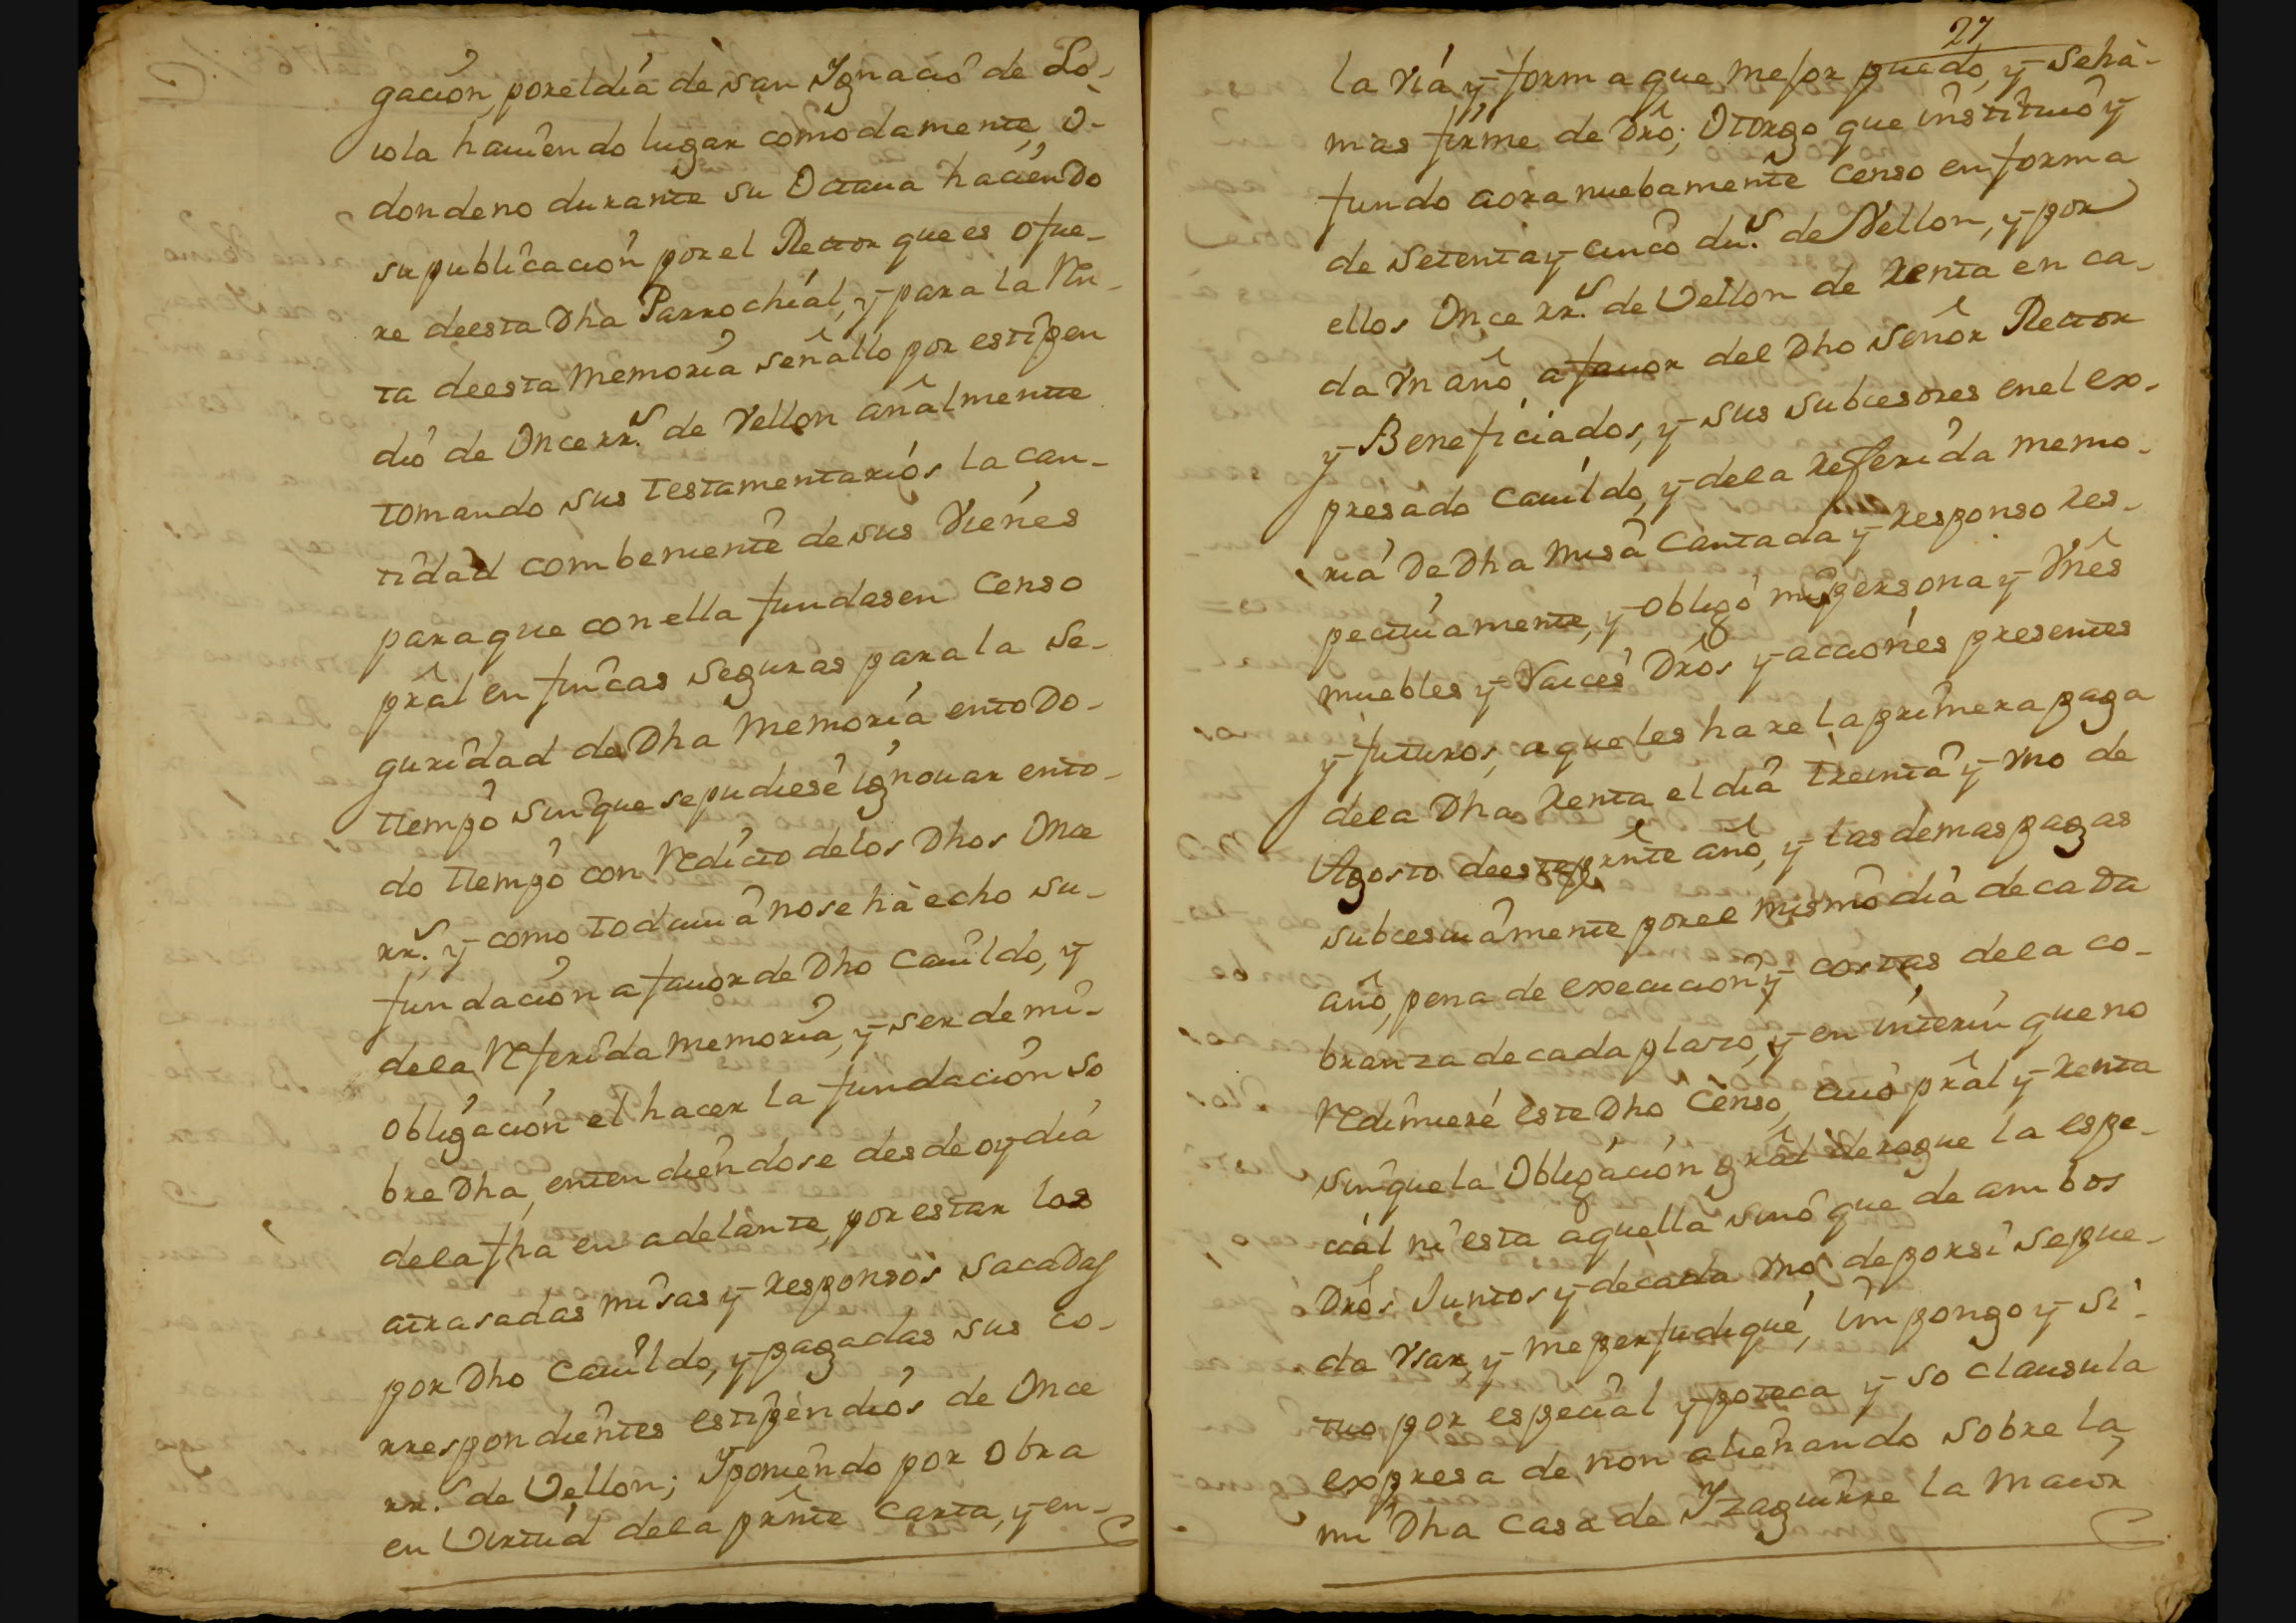 gación, por el día de san Ygnacio de Lo-
iola hauiendo lugar cómodamente, ó-
donde no durante su Octaua haciendo
su publicación por el Rector que es o fue-
re de esta Dha Parrochial, y para la Rn-
ta de esta Memoria señallo por estipen
dio de Once rr.s de Vellon añalmente
tomando sus testamentarios la can-
tidad combeniente de sus Vienes
para que con ella fundasen Censo
prâl en fincas seguras para la se-
guridad de Dha Memoria en todo-
tiempo sin que se pudiese ignouar en to-
do tiempo con Rédicto de los Dhos Once
rr.s y como todauia no se hà echo su-
fundación a fauor de Dho Cauildo, y
de la Referida Memoria, y ser de mi-
obligación el hacer la fundación so
bre Dha, entendiendose desde oy día
de la fha en adelante, por estar las
atrasadas misas y responsos sacadas
por Dho Cauildo, y pagadas sus co-
rrespondientes estipendios de Once
rr.s de Vellon; Y poniendo por obra
en Virtud de la prnte Carta, y en-
27
la Viá y forma que mejor puedo, y se há-
mas firme de Drô; Otorgo que instituió y
fundo aora nuebamente Censo en forma
de setenta y cinco du.s de Vellon, y por
ellos Once rr.s de Vellon de Renta en ca-
da Vn año, a fauor del Dho Señor Rector
y Beneficiados, y sus subcesores en el ex-
presado Cauildo, y de la Referida memo-
ria de Dha Misa Cantada y Responso res-
pectiuamente, y obligo mi persona y Vnês
muebles y Raices Drôs y acciones presentes
y futuros, a que les hare la primera paga
de la Dha Renta el día treinta y vno de
Agosto de este prnte año, y las demas pagas
subcesiuamente por el mismo día de cada
año, pena de execución y costas de la co-
branza de cada plazo, y en interin que no
Redimieré este Dho Censo, cuio prâl y Renta
sin que la Obligación grâl derogue la espe-
ciál ni esta aquella sinó que de ambos
Drôs Juntos y de cada vno de por sí se pue-
da Vsar, y me perjudiqué, impongo y si-
tuo por especial ypoteca y so clausula
expresa de non alienando sobre la
mi Dha Casa de Yzaguirre la Maior